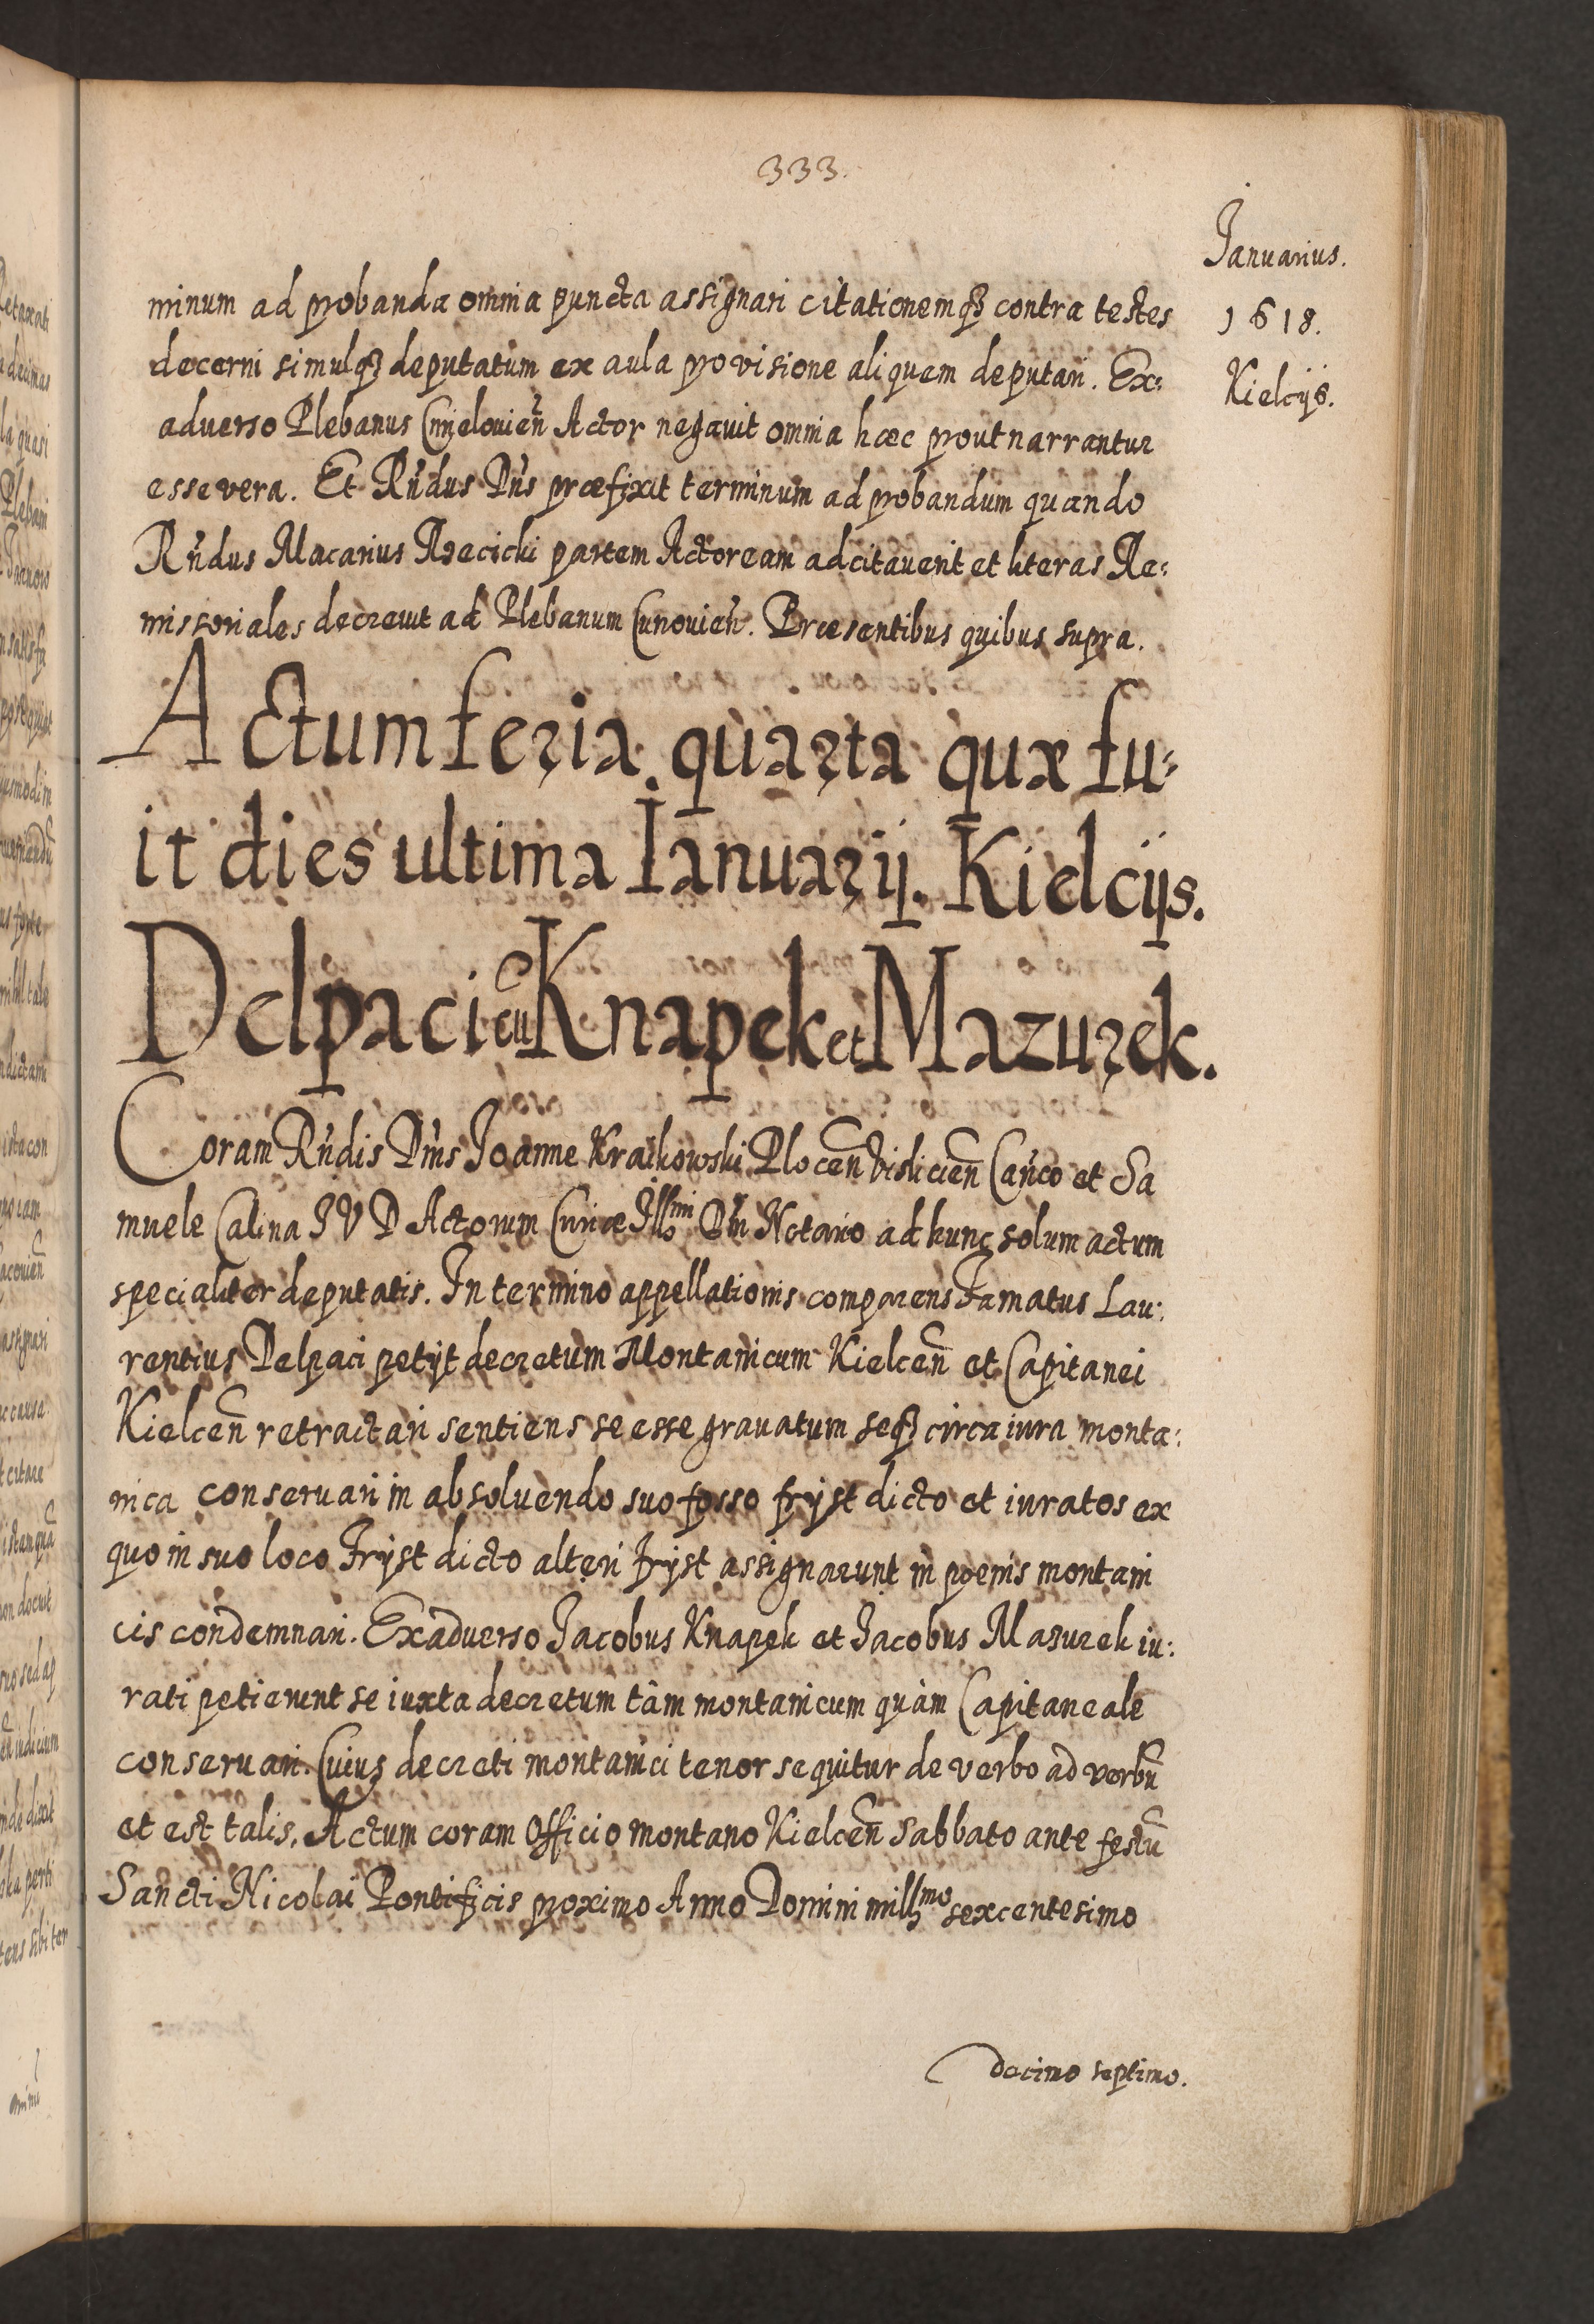 333.
Ianuarius.
1618.
Kielcijs.
minum ad probanda omnia puncta assignari citationemq3 contra testes
decerni simulq3 deputatum ex aula provisione aliquem deputari. Ex=
adverso Plebanus Cmielovien̄ Actor negavit omnia hæc prout narrantur
esse vera. Et Rn̄dus Dn̄s præfixit terminum ad probandum quando
Rn̄dus Macarius partem Actoream adcitaverit et literas Re=
missoriales decrevit ad Plebanum Cunovien̄. Præsentibus quibus supra.
Actum feria quarta quæ fu=
it dies ultima Ianuarij. Kielcijs.
Delpaci cū Knapek et Mazurek.
Coram Rn̄dis Dn̄is Ioanne Kraikowski Plocen̄ Vislicien̄ Can̄co et Sa
muele Calina I V D Actorum Curiæ Illmi Dn̄i Notario ad hunc solum actum
specialiter deputatis. In termino appellationis comparens Famatus Lau:
rentius Delpaci petijt decretum Montanicum Kielcen̄ et Capitanei
Kielcen̄ retractari sentiens se esse gravatum seq3 circa iura monta:
nica conservari in absolvendo suo fosso fryst dicto et iuratos ex
quo in suo loco Fryst dicto alteri fryst assignarunt in poenis montani
cis condemnari. Exadverso Iacobus Knapek et Iacobus Mazurek iu:
rati petierunt se iuxta decretum tàm montanicum quàm Capitaneale
conservari. Cuius decreti montanici tenor sequitur de verbo ad verbū
et est talis. Actum coram Officio montano Kielcen̄ Sabbato ante festū
Sancti Nicolai Pontificis proximo Anno Domini millmo sexcentesimo
decimo septimo.